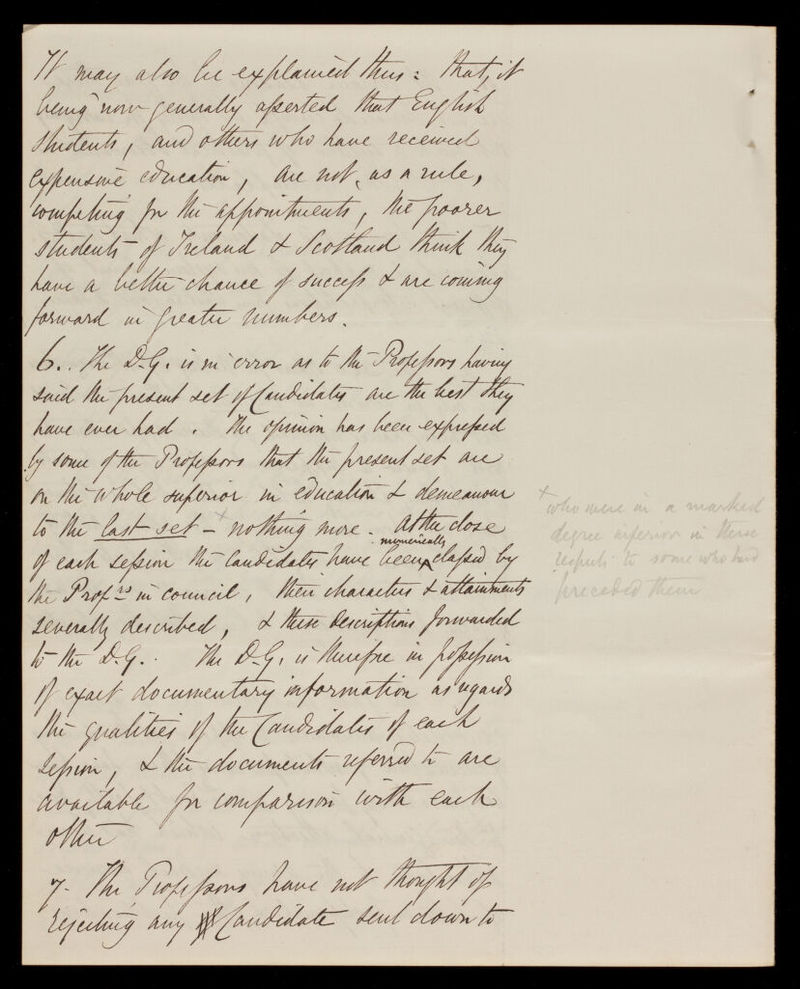 It may also be explained thus: that, it
being now generally asserted that English
Students, and others who have received
expensive education, are not, as a rule,
competing for the appointments, the poorer
students of Ireland & Scotland think they
have a better chance of success & are coming
forward in greater numbers.
6.. The D.G. is in error as to the Professors having
said the present set of Candidates are the best they
have ever had. The opinion has been expressed
by some of the Professors that the present set are
on the whole superior in education & demeanour
to the last set - × nothing more. At the close
of each session the Candidates have been numerically classed by
the Profrs in council, their characters & attainments
severally described, & these descriptions forwarded
to the D.G.. The D.G. is therefore in possession
of exact documentary information as regards
the qualities of the Candidates of each
session, & the documents referred to are
available for comparison with each
other
7. The Professors have not thought of
rejecting any Candidate sent down to
× who were in a marked
degree inferior in these
respects to some who had
preceded them